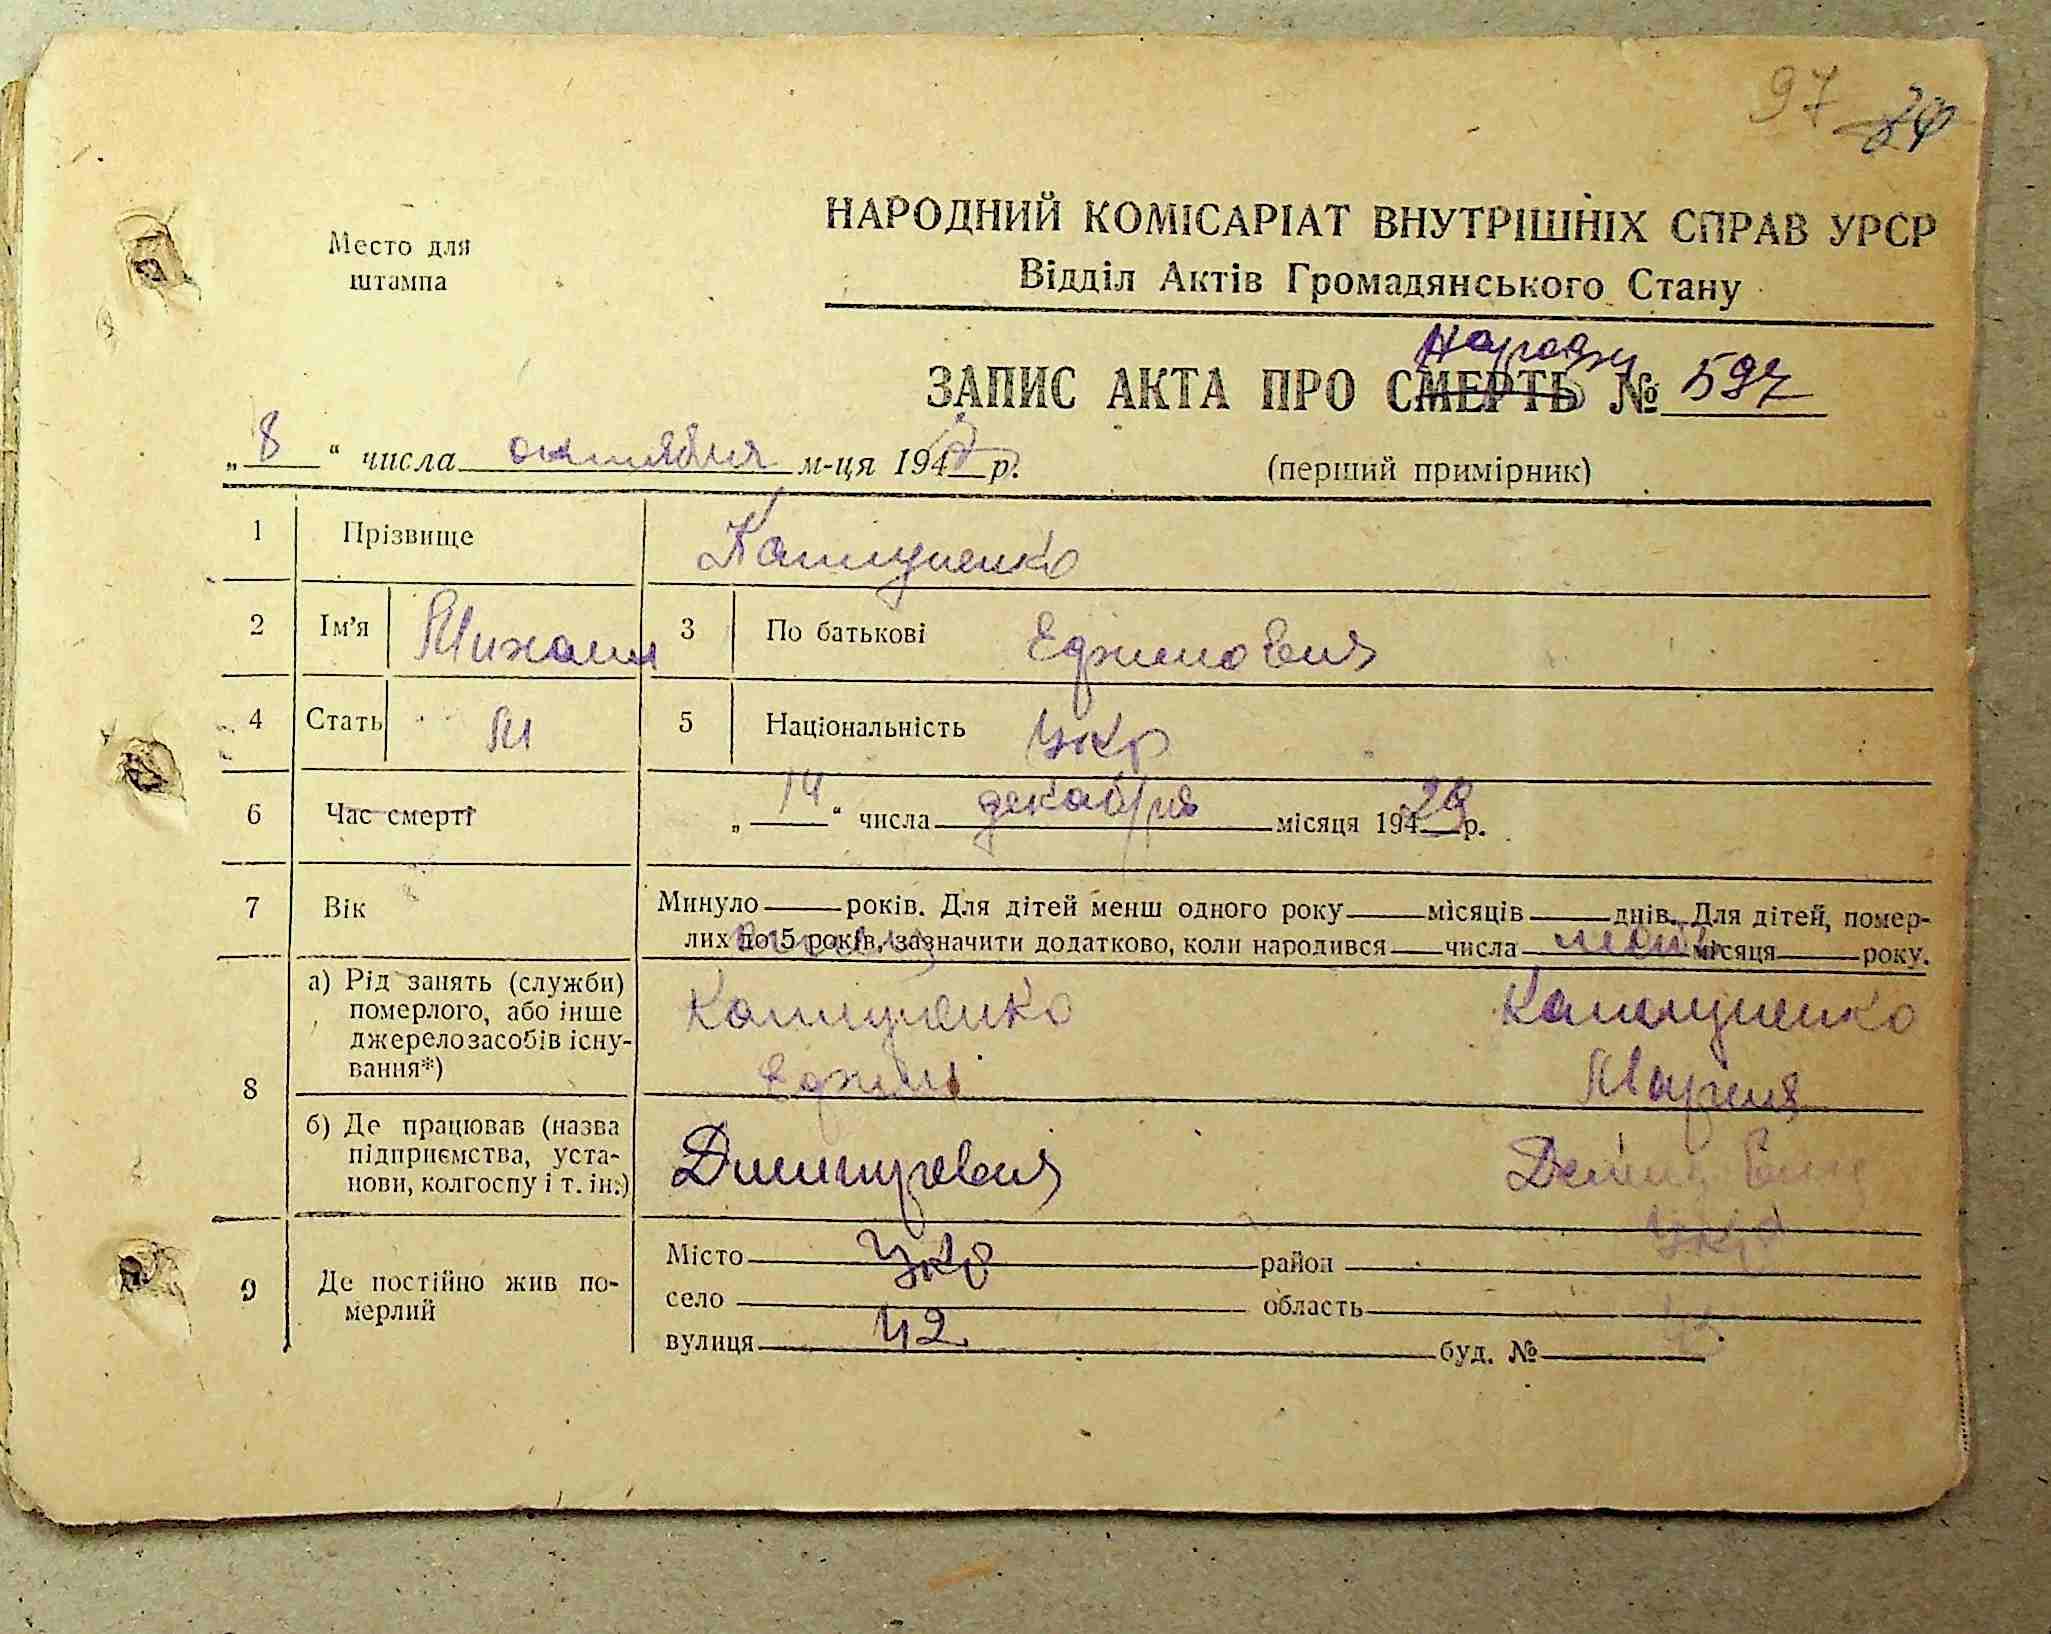 97 24
Место для
штампа
НАРОДНИЙ КОМІСАРІАТ ВНУТРІШНІХ СПРАВ УРСР
Відділ Актів Громадянського Стану
ЗАПИС АКТА ПРО СМЕРТЬ № 597
„8“ числа октября м-ця 194 р.
(перший примірник)
1 Прізвище
2 Ім'я Михаил 3 По батькові Ефимович
4 Стать М 5 Національність Укр
6 Час смерті „14“ числа декабря місяця 194 29 р.
7 Вік Минуло років. Для дітей менш одного року місяців днів. Для дітей, помер-
лих до 5 років, зазначити додатково, коли народився числа місяця року.
8 а) Рід занять (служби)
померлого, або інше
джерело засобів існу-
вання*)
Ефим Мария
б) Де працював (назва
підприємства, уста-
нови, колгоспу і т. ін.)
Дмитриевич
9 Де постійно жив по-
мерлий
Місто Укр район Укр
село область
вулиця 42 буд. №